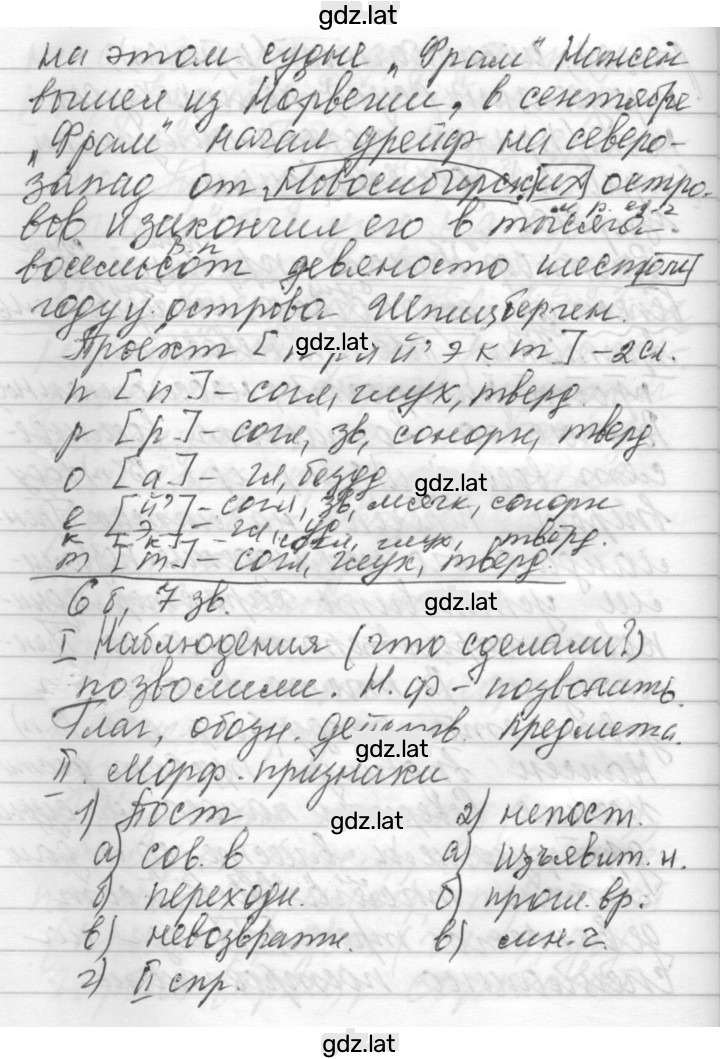 gdz.lat
на этом судне „Фрам“ Нансен
вышел из Норвегии, в сентябре
„Фрам“ начал дрейф на северо-
запад от Новосибирских остро-
вов и закончил его в тысяча
м. р. ед. ч
восемьсот девяносто шестом
году у острова Шпицберген.
gdz.lat
Проект [прайʼэкт] - 2 сл.
п [п] - согл, глух, тверд.
р [р] - согл, зв, сонорн, тверд
о [а] - гл, безуд
gdz.lat
е [йʼ] - согл, зв, мягк, сонорн
[э] - гл, уд
к [к] - согл, глух, тверд.
т [т] - согл, глух, тверд.
6 б, 7 зв.
gdz.lat
I Наблюдения (что сделали?)
позволили. Н.ф - позволить.
Глаг, обозн. действ. предмета.
gdz.lat
II. Морф. признаки
1) Пост 2) непост.
gdz.lat
а) сов. в а) изъявит. н.
б) переходн. б) прош. вр.
в) невозвратн. в) мн. ч.
г) II спр.
gdz.lat